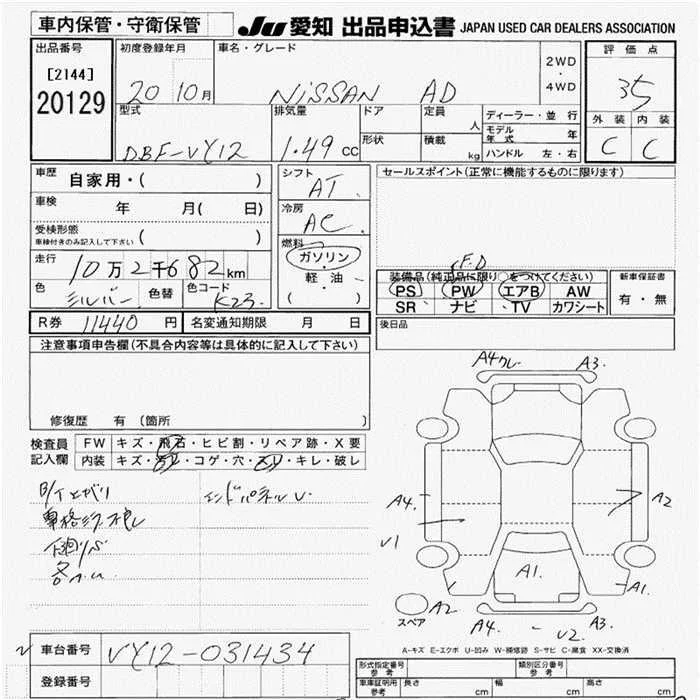 車内保管・守衛保管 JU 愛知 出品申込書 JAPAN USED CAR DEALERS ASSOCIATION
出品番号 初度登録年月 車名・グレード 2WD ・ 4WD 評価点
[2144]
20129
20 10月 NISSAN AD 35
型式 排気量 ドア 定員 人 ディーラー・並行 外装 内装
形状 積載 kg モデル年式 年
DBF-VY12 1.49 cc ハンドル 左・右 C C
車歴 自家用・( ) シフト AT セールスポイント(正常に機能するものに限ります)
車検 年 月( 日) 冷房 AC
受検形態 車検付きのみ記入して下さい ( )
燃料 ガソリン・軽・油・( )
走行 10万2千682km
装備品(純正品に限り○をつけてください) 新車保証書
PS PW エアB AW 有・無
SR ナビ TV カワシート
色 シルバー 色替 色コード K23
R券 11440 円 名変通知期限 月 日 後日品
注意事項申告欄(不具合内容等は具体的に記入して下さい)
修復歴 有 (箇所 )
検査員記入欄 FW キズ・飛石・ヒビ割・リペア跡・X要
内装 キズ・コゲ・穴・キレ・破レ
下廻りS
エンドパネルU
A4 A3
A4 A2
U1
A1 A1
スペア A2
A4 U2 A3
A-キズ E-エクボ U-凹み W-補修跡 S-サビ C-腐食 XX-交換済
車台番号 VY12-031434
登録番号
形式指定番号 参考 類別区分番号 参考
車庫証明用 参考 長さ cm 幅 cm 高さ cm